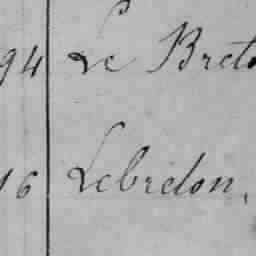 94 Le Breto
16 Lebredon,